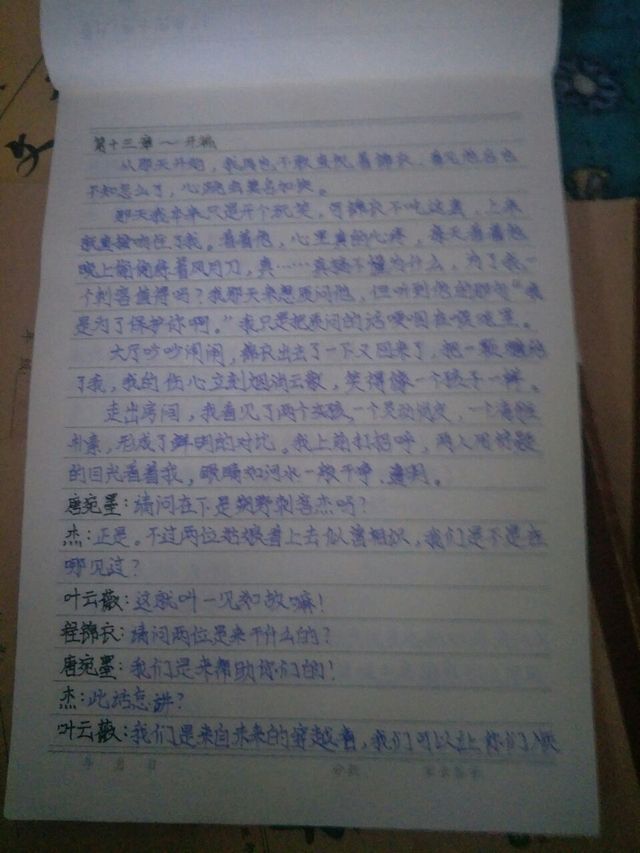 第十三章～开
从那天开始，我再也不敢直视着锦衣，看见他名也
不知怎么了，心跳莫名加快。
那天我本来只是开个玩笑，可锦衣不吃这套，上来
就直接吻住了我。看着他，心里真的心疼，每天看着他
晚上偷偷练着风月刀，真……真搞不懂为什么，为了我一
个刺客值得吗？我那天来想质问他，但听到他的那句“我
是为了保护你啊。”我只是把质问的话哽咽在喉咙里。
大厅吵吵闹闹，锦衣出去了一下又回来了，把一颗糖给
了我，我的伤心立刻烟消云散，笑得像一个孩子一样。
走出房间，我看见了两个女孩，一个灵动俏皮，一个
朴素，形成了鲜明的对比。我上前打招呼，两人用好疑
的目光看着我，眼睛如河水一般干净、透彻。
唐宛墨：请问在下是朝野刺客杰吗？
杰：正是。不过两位姑娘看上去似曾相识，我们是不是在
哪见过？
叶云薇：这就叫一见如故嘛！
程锦衣：请问两位是来干什么的？
唐宛墨：我们是来帮助你们的！
杰：此话怎讲？
叶云薇：我们是来自未来的穿越者，我们可以让你们
年 月 日